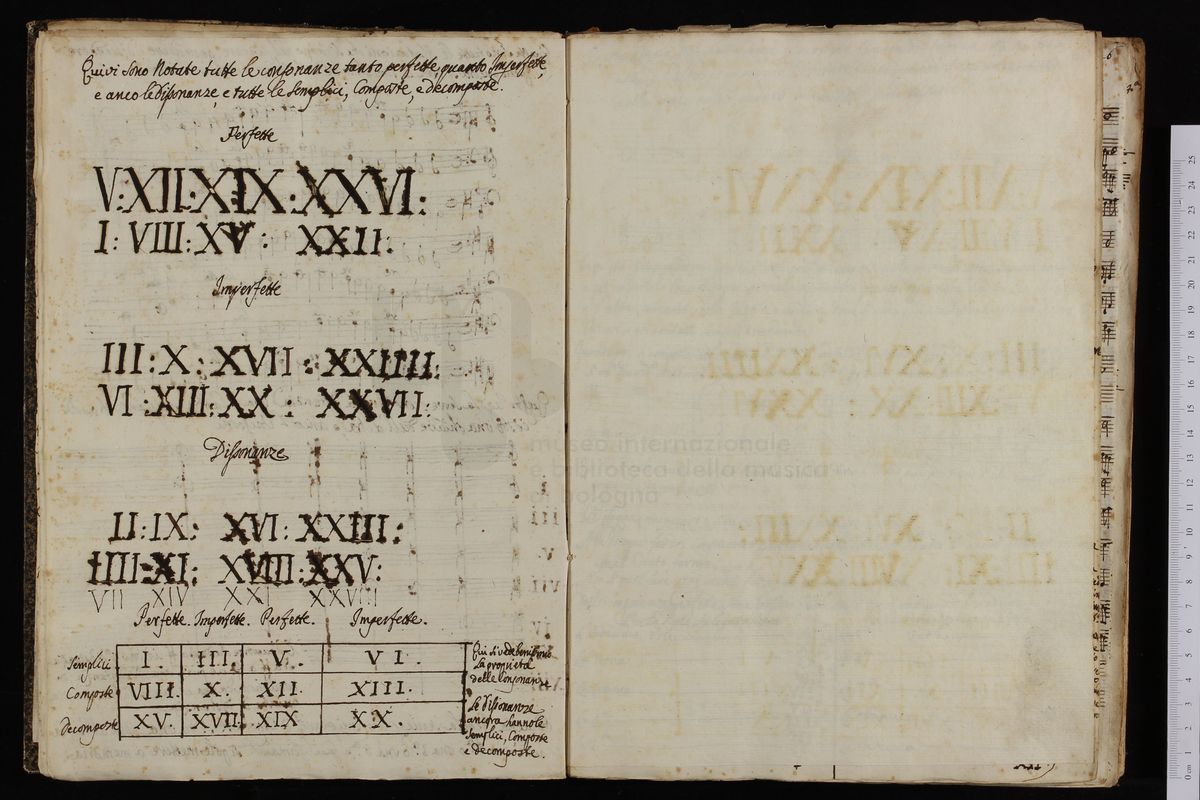 Quivi sono Notate tutte le consonanze tanto perfette, quanto Imperfette,
e anco le dissonanze, e tutte le semplici, Composte, e decomposte.
Perfette
V:XII:XIX:XXVI:
I: VIII:XV: XXII:
Imperfette
III:X: XVII: XXIIII:
VI:XIII:XX: XXVII:
Dissonanze
II:IX: XVI: XXIII:
IIII:XI: XVIII:XXV:
VII XIV XXI XXVIII
Perfette. Imperfette. Perfette. Imperfette.
Semplici I. III. V. VI.
Composte VIII. X. XII. XIII.
decomposte XV. XVII. XIX XX.
Qui si vede
la proprietà
delle Consonanze
Le dissonanze
ancora hannole
semplici, Composte
e decomposte.
museo internazionale
e biblioteca della musica
di bologna
0 cm 1 2 3 4 5 6 7 8 9 10 11 12 13 14 15 16 17 18 19 20 21 22 23 24 25